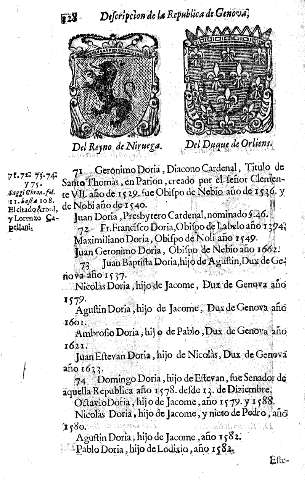 128 Descripcion de la Republica de Genova,
Del Reyno de Niruega. Del Duque de Orliens.
71. 72. 73. 74.
y 75.
11. hasta 108.
y Lorenzo Ca-
pellani.
71 Geronimo Doria, Diacono Cardenal, Titulo de
Santo Thomàs, en Parion, creado por el señor Clemen-
te VII. año de 1529. fue Obispo de Nebio año de 1536. y
de Nobi año de 1540.
Juan Doria, Presbytero Cardenal, nominado
72 Fr. Francisco Doria, Obispo de Labelo año 1394.
Maximiliano Doria, Obispo de Noli año 1549.
Juan Geronimo Doria, Obispo de Nebio año 1662.
73 Juan Baptista Doria, hijo de Agustin, Dux de Ge-
nova año 1537.
Nicolàs Doria, hijo de Jacome, Dux de Genova año
1579.
Agustin Doria, hijo de Jacome, Dux de Genova año
1601.
Ambrosio Doria, hijo de Pablo, Dux de Genova año
1621.
Juan Estevan Doria, hijo de Nicolàs, Dux de Genova
año 1633.
74 Domingo Doria, hijo de Estevan, fue Senador de
aquella Republica año 1578. desde 12. de Diziembre.
Octavio Doria, hijo de Jacome, año 1579. y 1588.
Nicolàs Doria, hijo de Jacome, y nieto de Pedro, año
1580.
Agustin Doria, hijo de Jacome, año 1582.
Pablo Doria, hijo de Lodisio, año 1582.
Este-